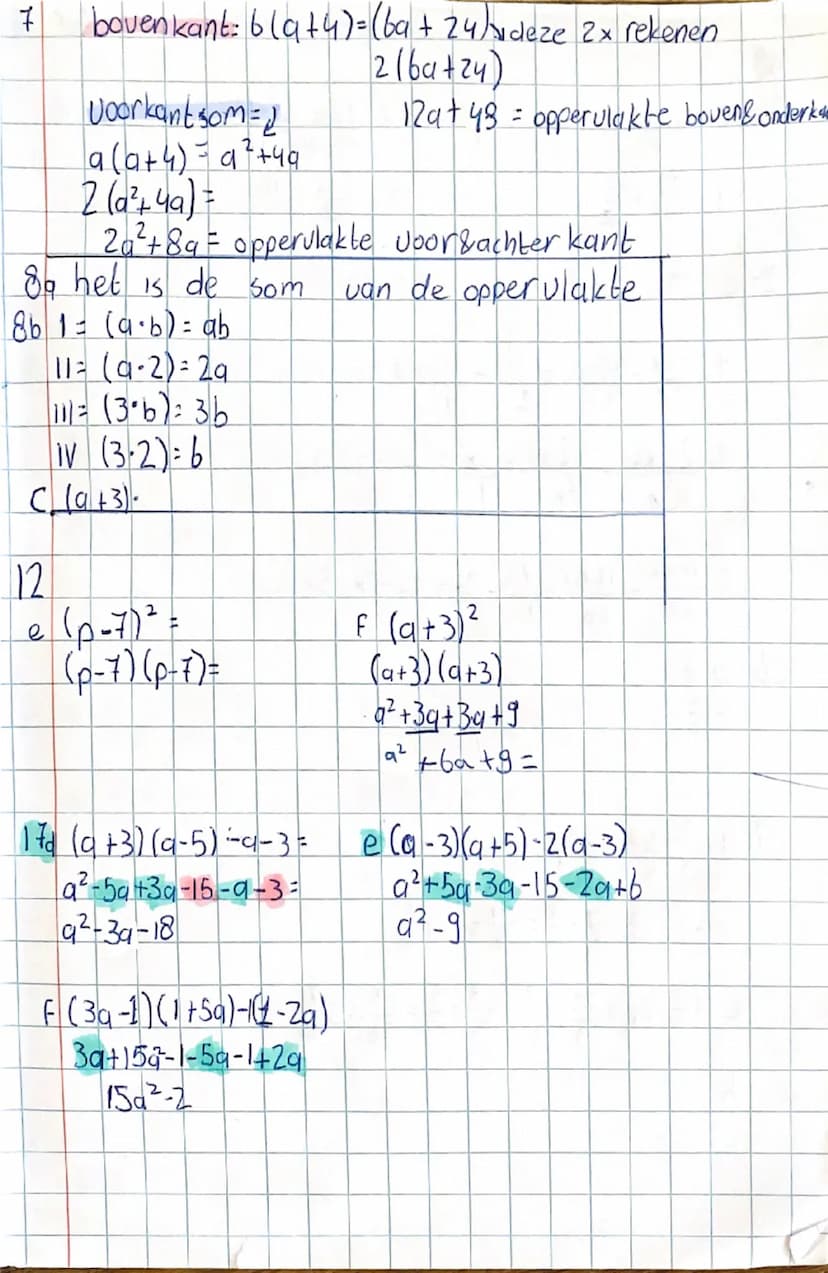 7 bovenkant: 6(a+4)=(6a + 24)↘deze 2x rekenen
2(6a+24)
voorkant som=2
12a+48 = oppervlakte boven&onderkan
a(a+4) = a²+4a
2(a²+4a)=
2a²+8a = oppervlakte voor&achterkant
8a het is de som van de oppervlakte
8b I= (a·b)= ab
II= (a·2)=2a
III= (3·b)= 3b
IV (3·2)=6
C. (a+3)·
12
e (p-7)² =
(p-7)(p-7)=
f (a+3)²
(a+3)(a+3)
a²+3a+3a+9
a² +6a+9=
17d (a+3)(a-5)-a-3=
a²-5a+3a-15-a-3=
a²-3a-18
e (a-3)(a+5)-2(a-3)
a²+5a-3a-15-2a+6
a²-9
f (3a-1)(1+5a)-1(1-2a)
3a+15a²-1-5a-1+2a
15a²-2